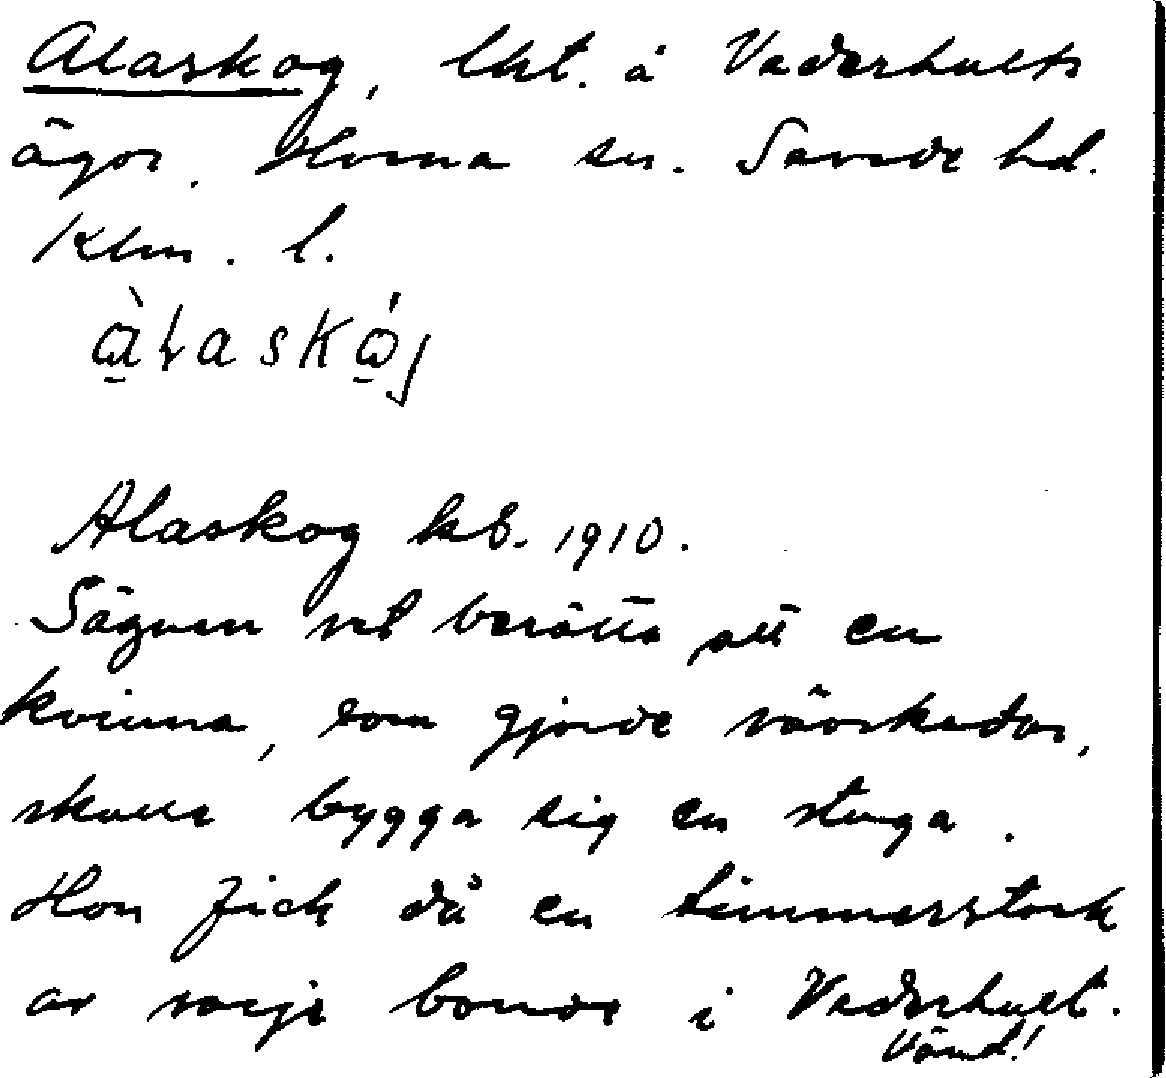 Alaskog, lht. å Vaderhults
ägor. Horna sn. Sevede hd.
Klm. l.
àlaskój
Alaskog kb. 1910.
Sägnen vet berätta att en
kvinna, som gjorde vävskedar,
skulle bygga sig en stuga.
Hon fick då en timmerstock
av varje bonde i Vaderhult.
Vänd!